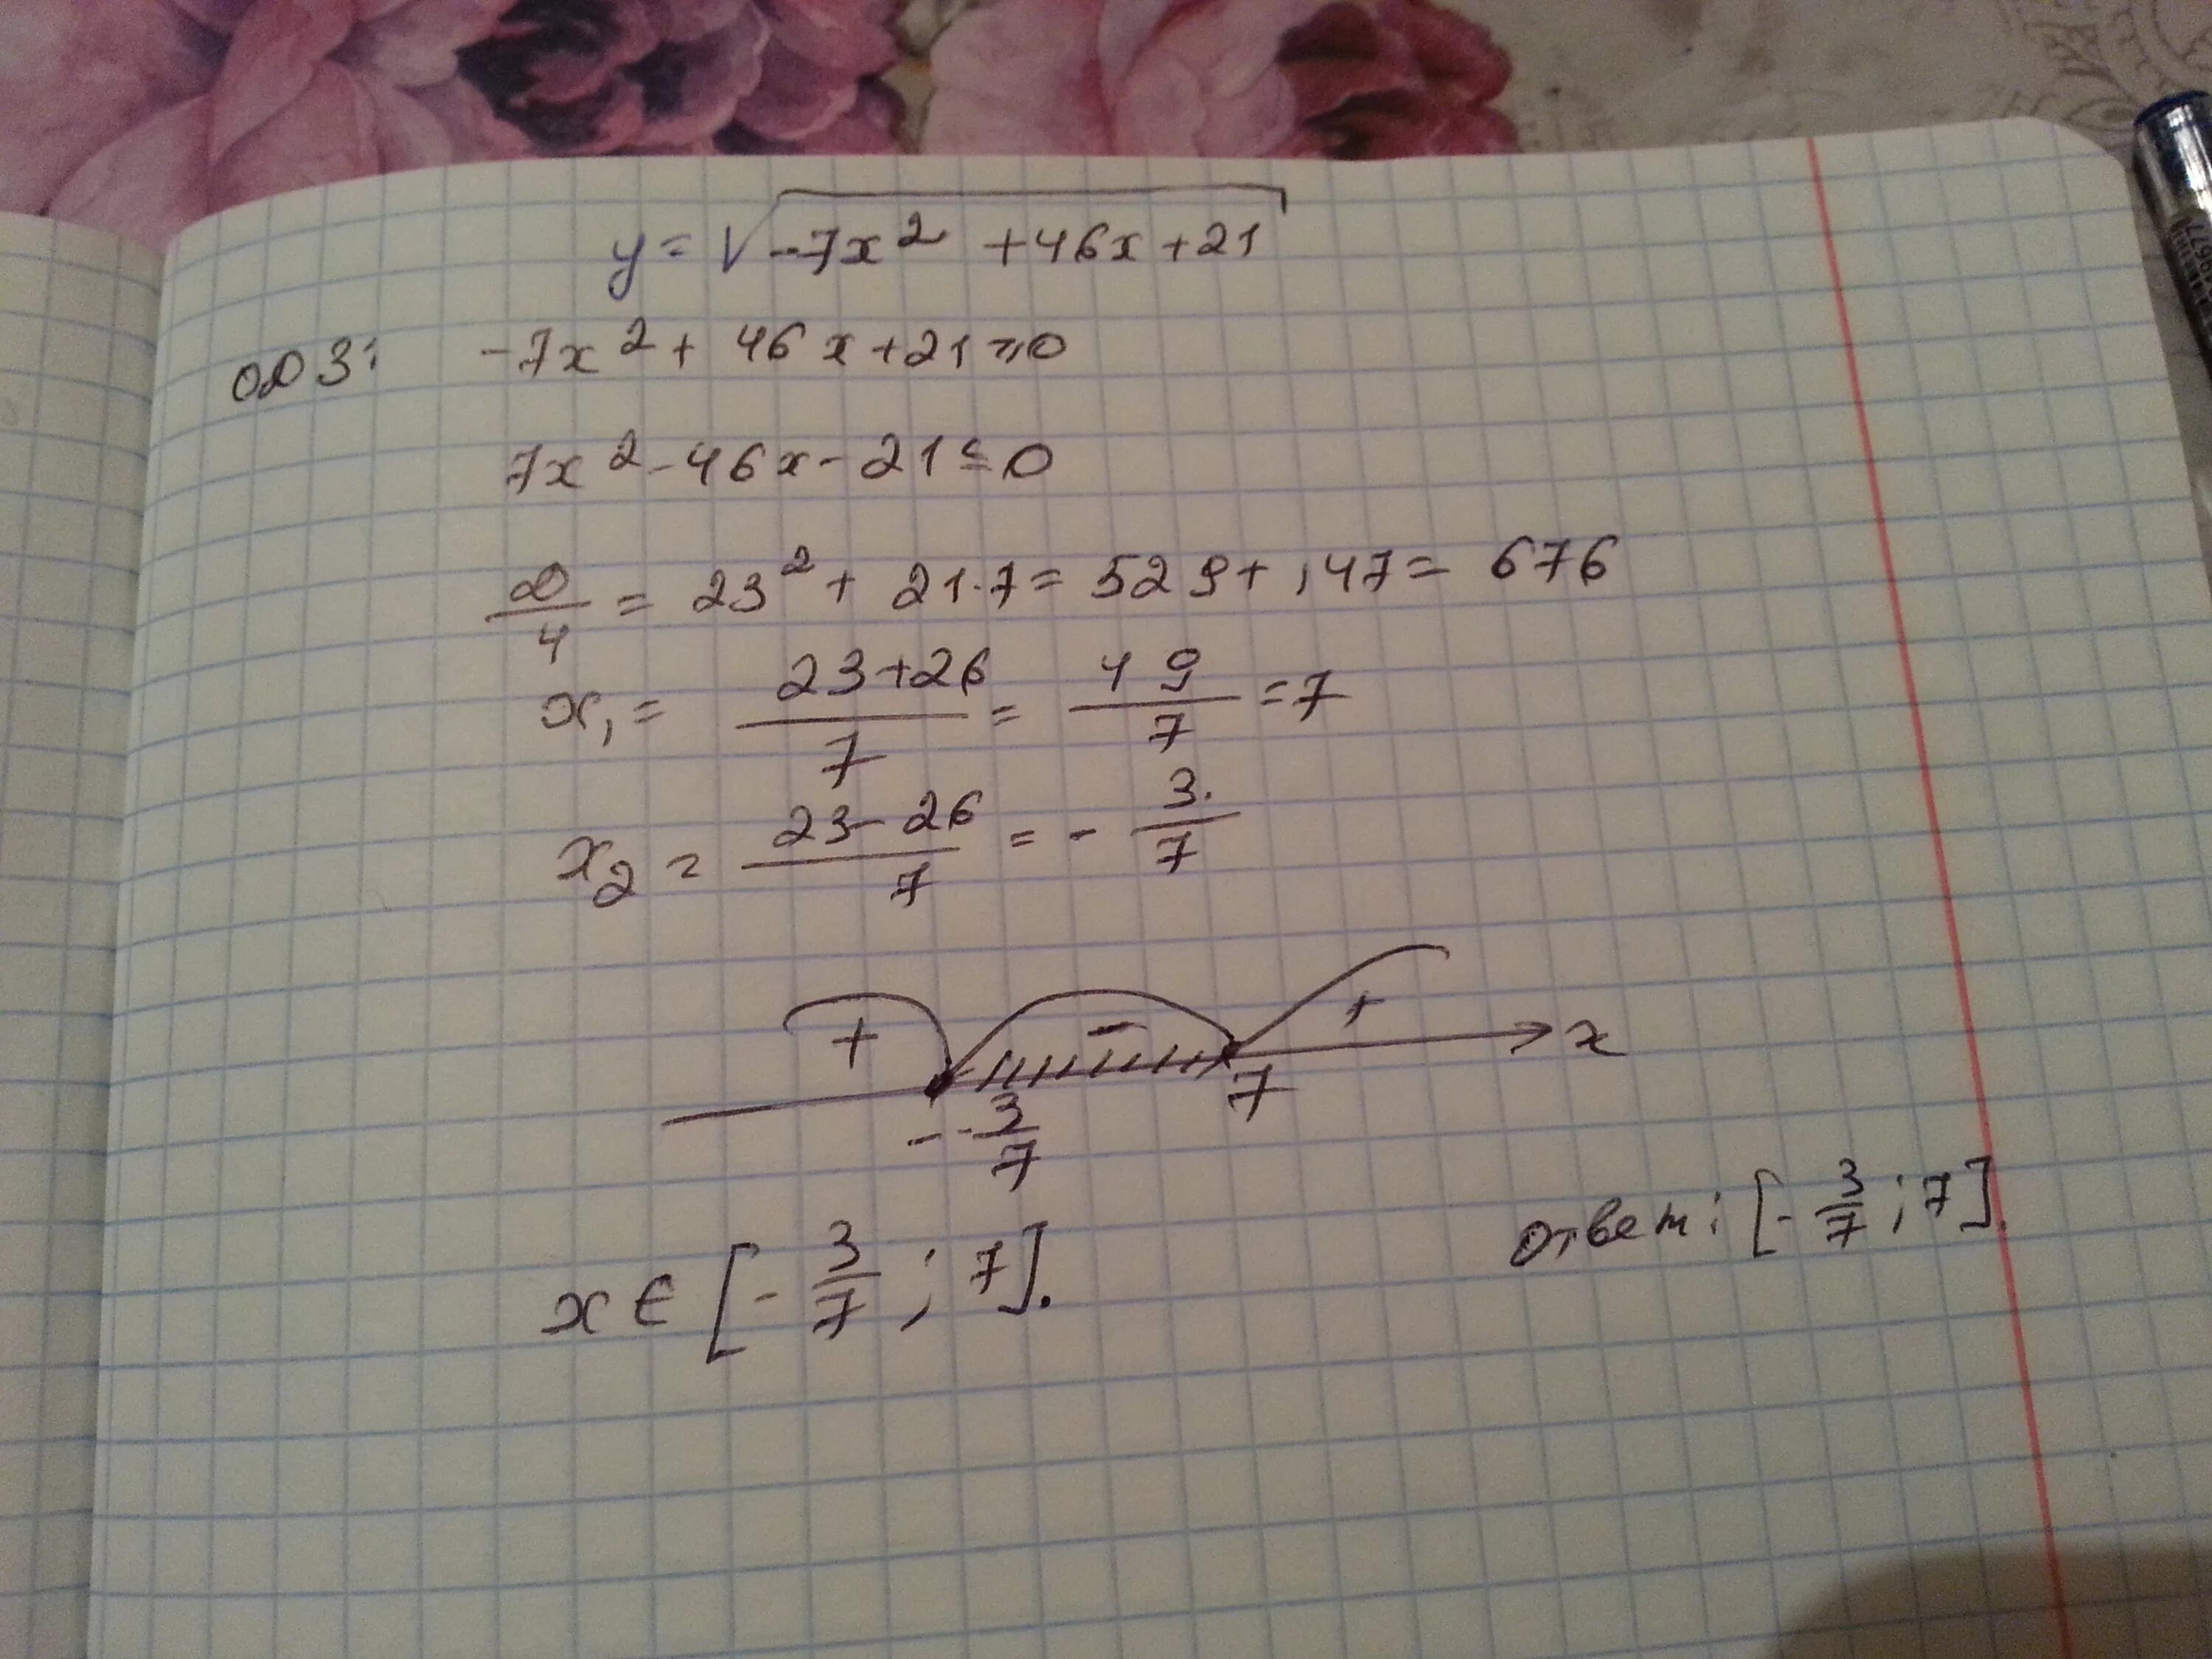 y = √-7x² + 46x + 21
ОДЗ: -7x² + 46x + 21 ≥ 0
7x² - 46x - 21 ≤ 0
D/4 = 23² + 21·7 = 529 + 147 = 676
x₁ = (23+26)/7 = 49/7 = 7
x₂ = (23-26)/7 = -3/7
+ - + x
-3/7 7
x ∈ [-3/7; 7].
Ответ: [-3/7; 7].